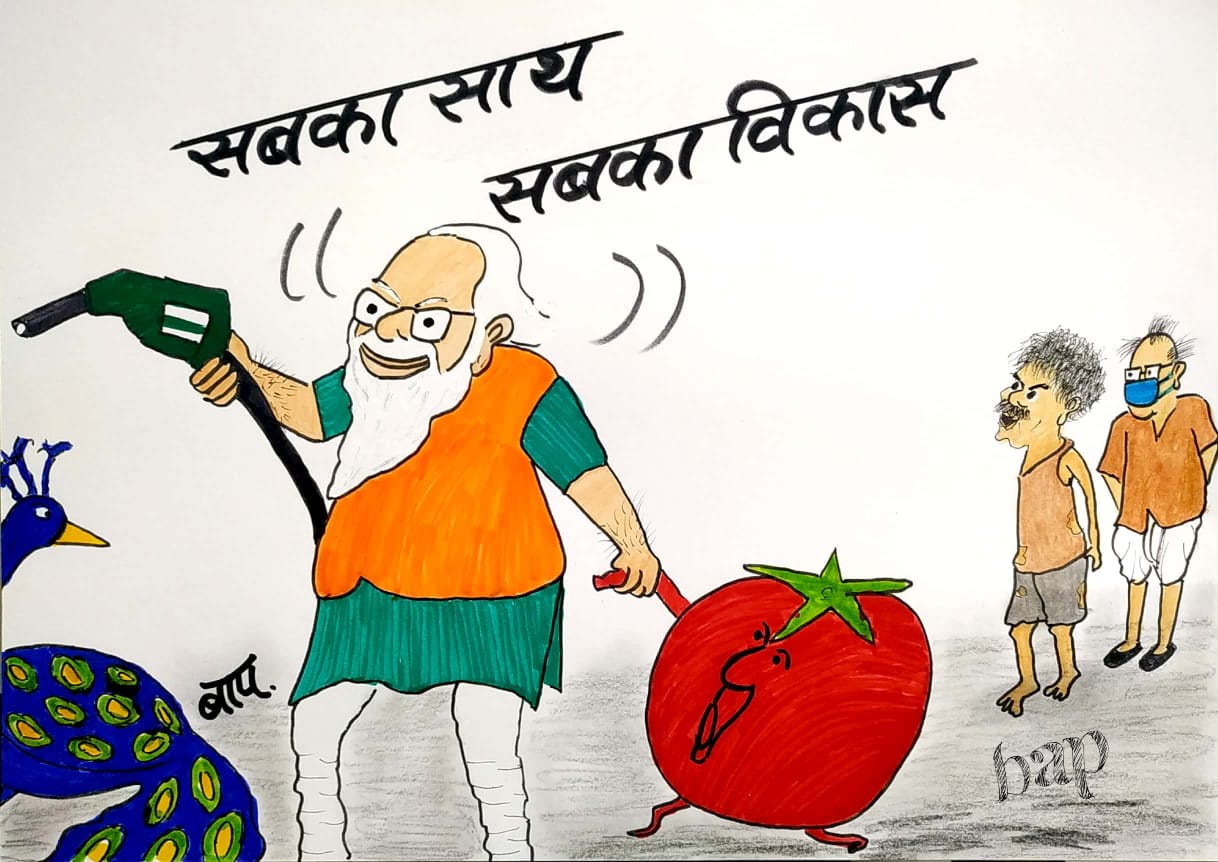 सबका साथ
सबका विकास
बाप.
bap